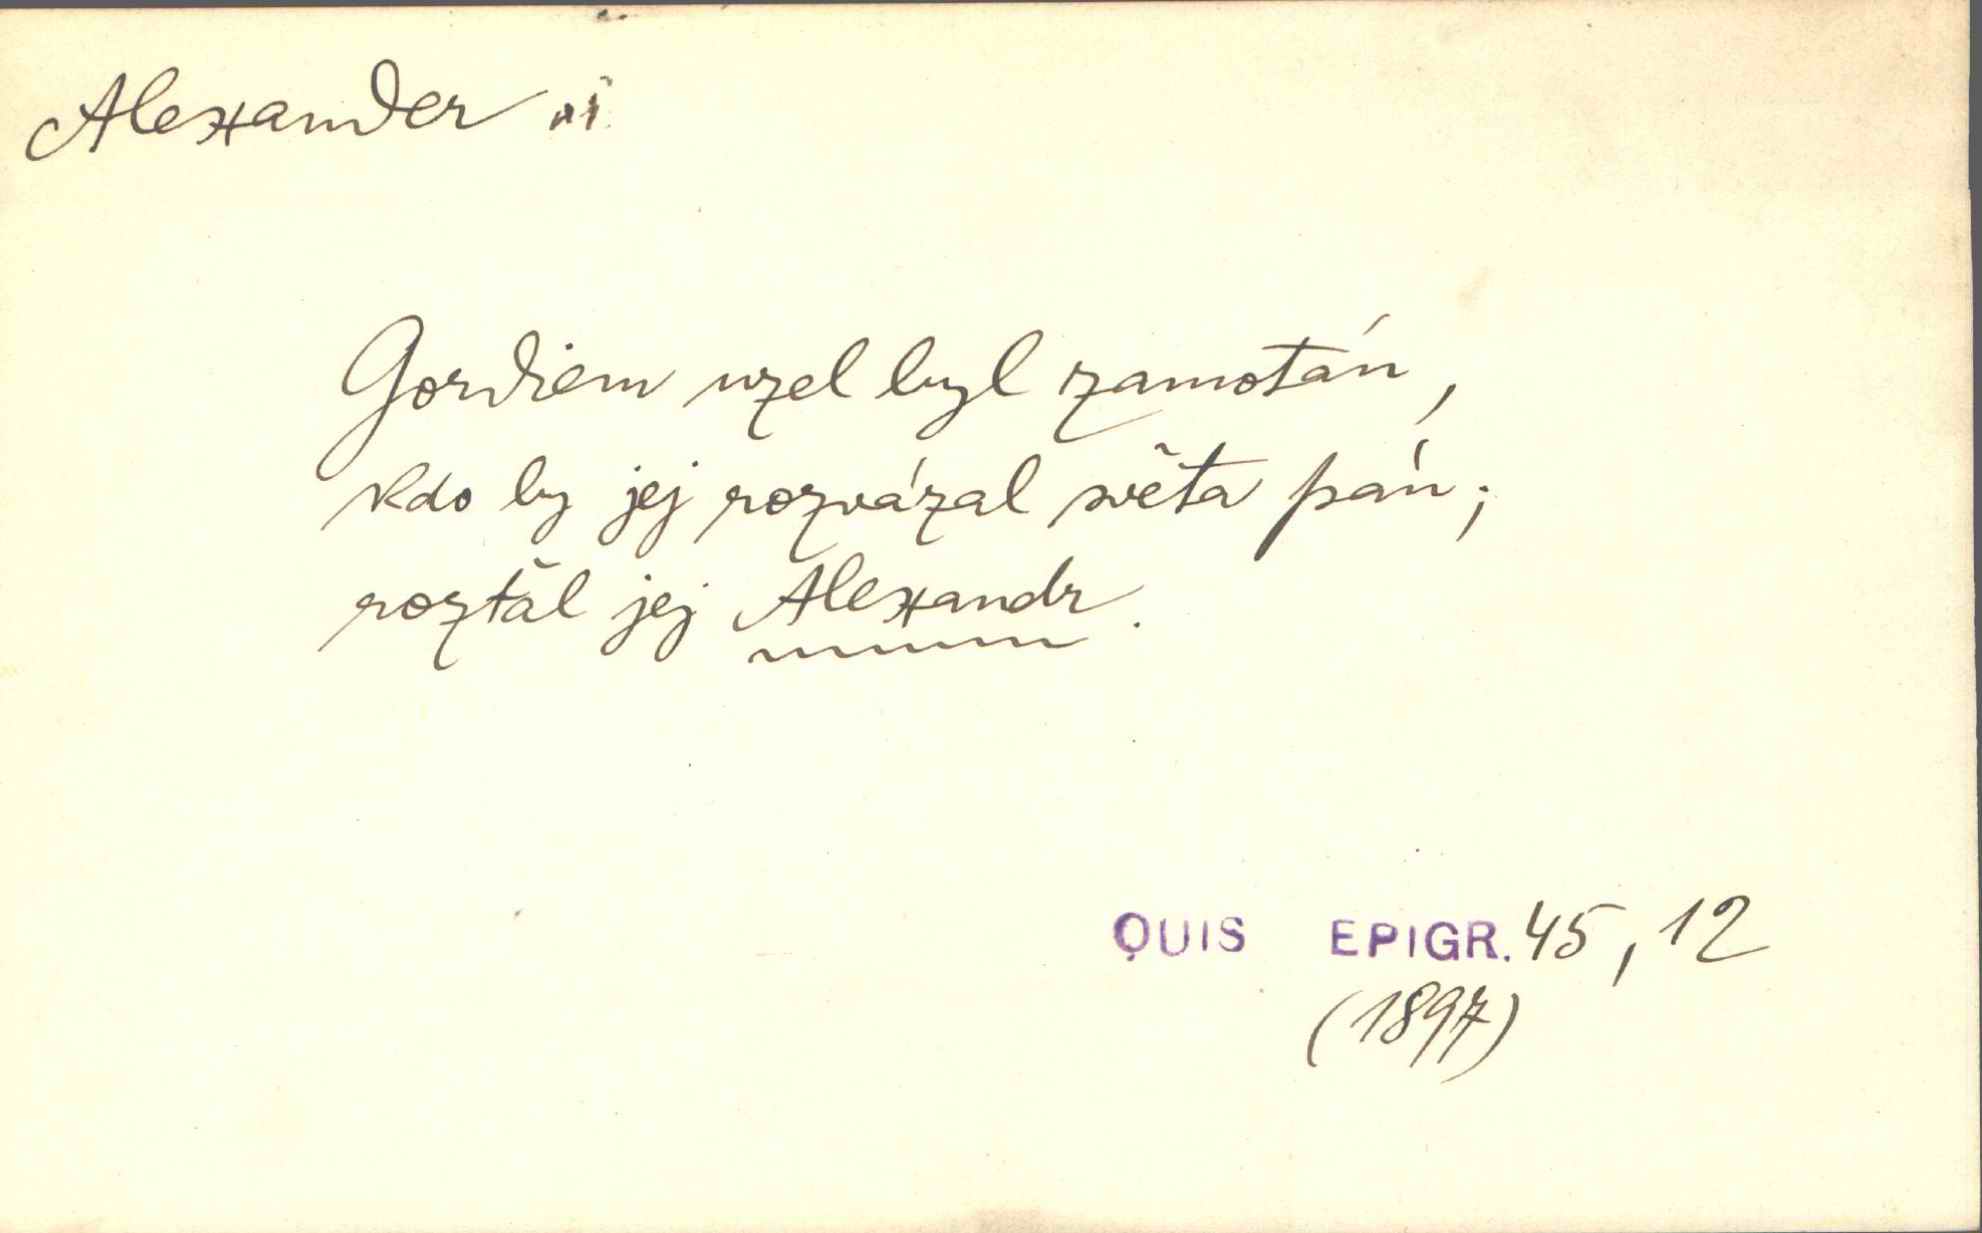 Alexander
Gordiem uzel byl zamotán,
kdo by jej rozvázal světa pán;
roztăl jej Alexandr.
QUIS EPIGR. 45, 12
(1897)